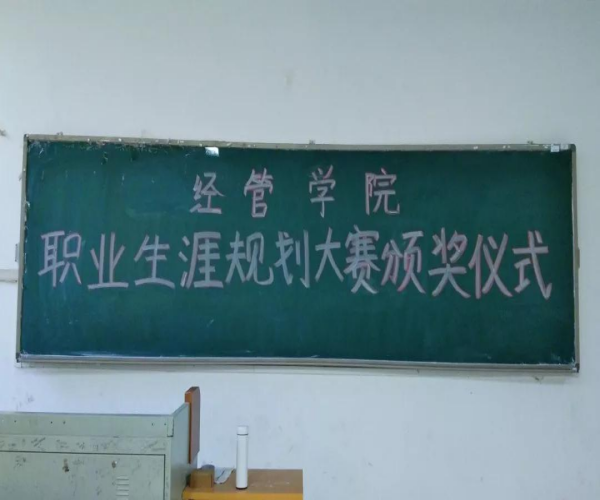 经管学院
职业生涯规划大赛颁奖仪式